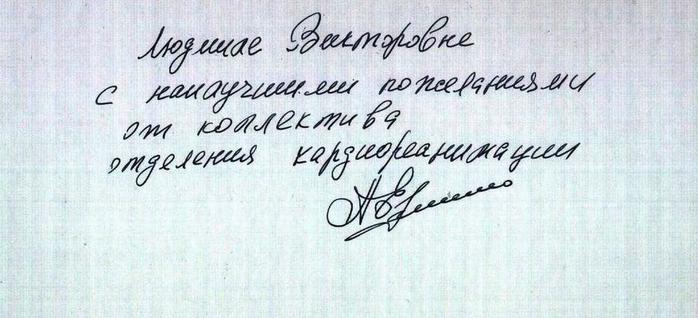 Людмиле Викторовне
с наилучшими пожеланиями
от коллектива
отделения кардиореанимации